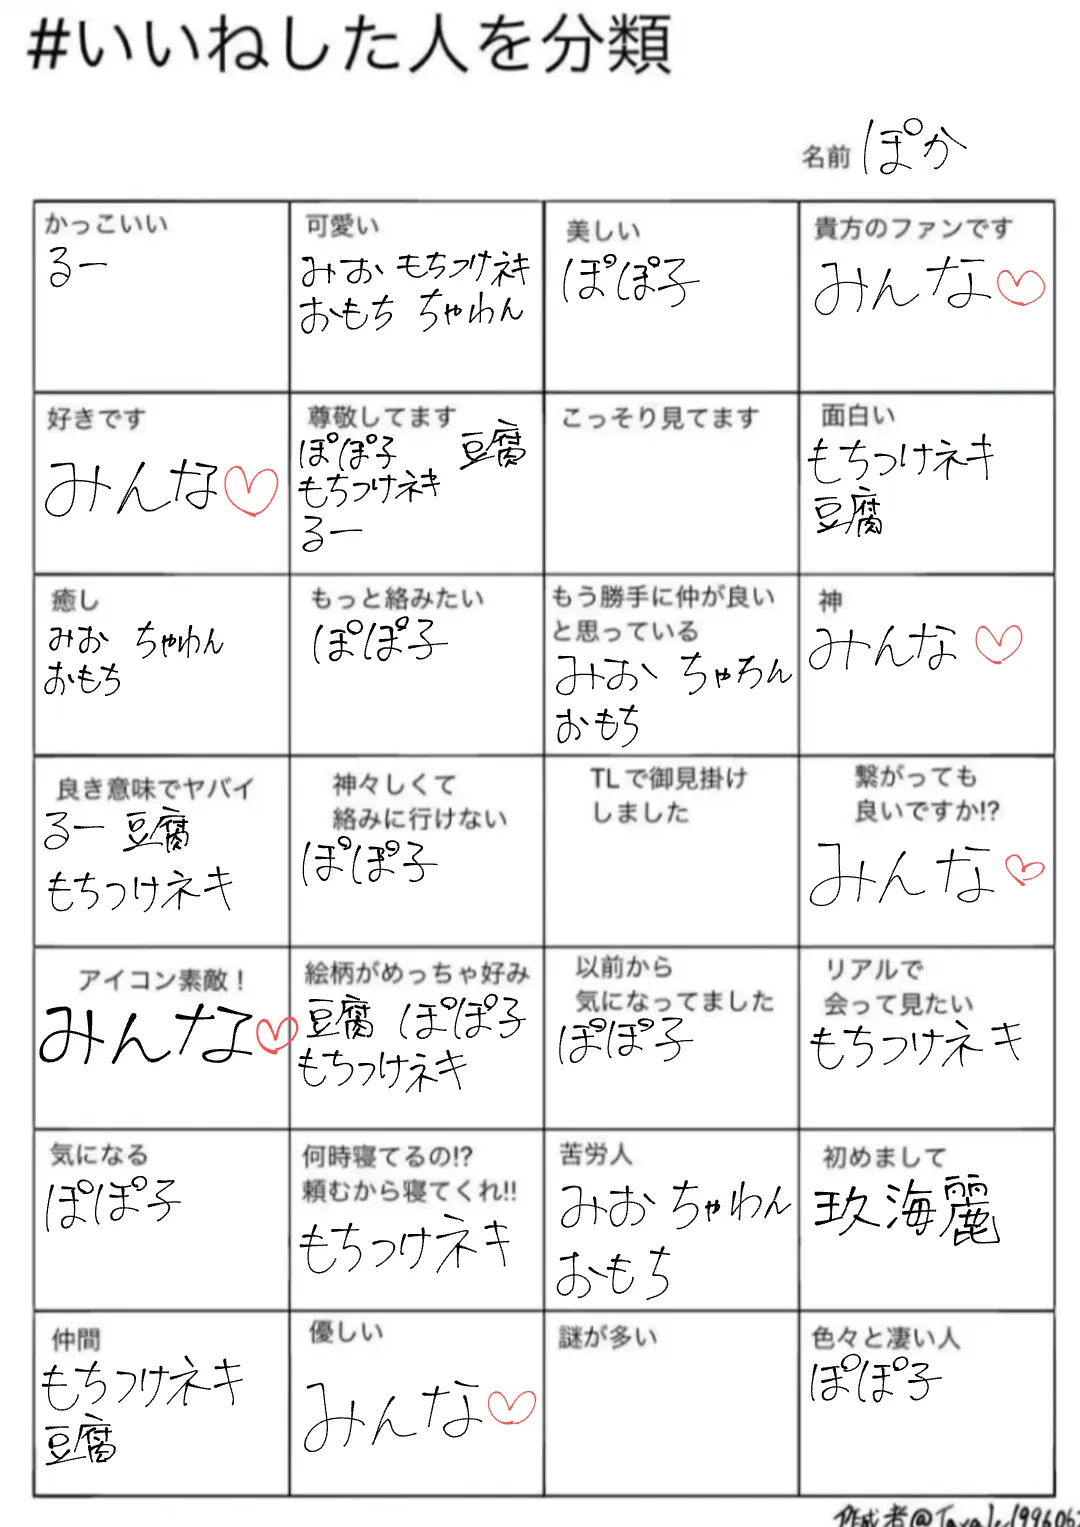 #いいねした人を分類
名前 ぽか
かっこいい
るー
可愛い
みお もちつけネキ
おもち ちゃわん
美しい
ぽぽ子
貴方のファンです
みんな♡
好きです
みんな♡
尊敬してます
ぽぽ子 豆腐
もちつけネキ
るー
こっそり見てます
面白い
もちつけネキ
豆腐
癒し
みお ちゃわん
おもち
もっと絡みたい
ぽぽ子
もう勝手に仲が良い
と思っている
みお ちゃわん
おもち
神
みんな♡
良き意味でヤバイ
るー 豆腐
もちつけネキ
神々しくて
絡みに行けない
ぽぽ子
TLで御見掛け
しました
繋がっても
良いですか!?
みんな♡
アイコン素敵！
みんな♡
絵柄がめっちゃ好み
豆腐 ぽぽ子
もちつけネキ
以前から
気になってました
ぽぽ子
リアルで
会って見たい
もちつけネキ
気になる
ぽぽ子
何時寝てるの!?
頼むから寝てくれ!!
もちつけネキ
苦労人
みお ちゃわん
おもち
初めまして
玖海麗
仲間
もちつけネキ
豆腐
優しい
みんな♡
謎が多い
色々と凄い人
ぽぽ子
作成者